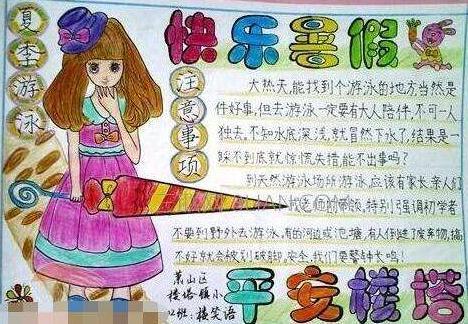 快乐暑假
夏季游泳
注意事项
大热天，能找到个游泳的地方当然是
件好事，但去游泳一定要有大人陪伴，不可一人
独去，不知水底深浅，就冒然下水了，结果是一
踩不到底就惊慌失措，能不出事吗？
到天然游泳场所游泳，应该有家长、亲人们
老师的带领，特别强调初学者
不要到野外去游泳，有的河边或池塘，有人倒进了废弃物，搞
不好就会被划破脚，安全，我们要警钟长鸣！
萧山区
楼塔镇小
班：楼笑语
平安楼塔